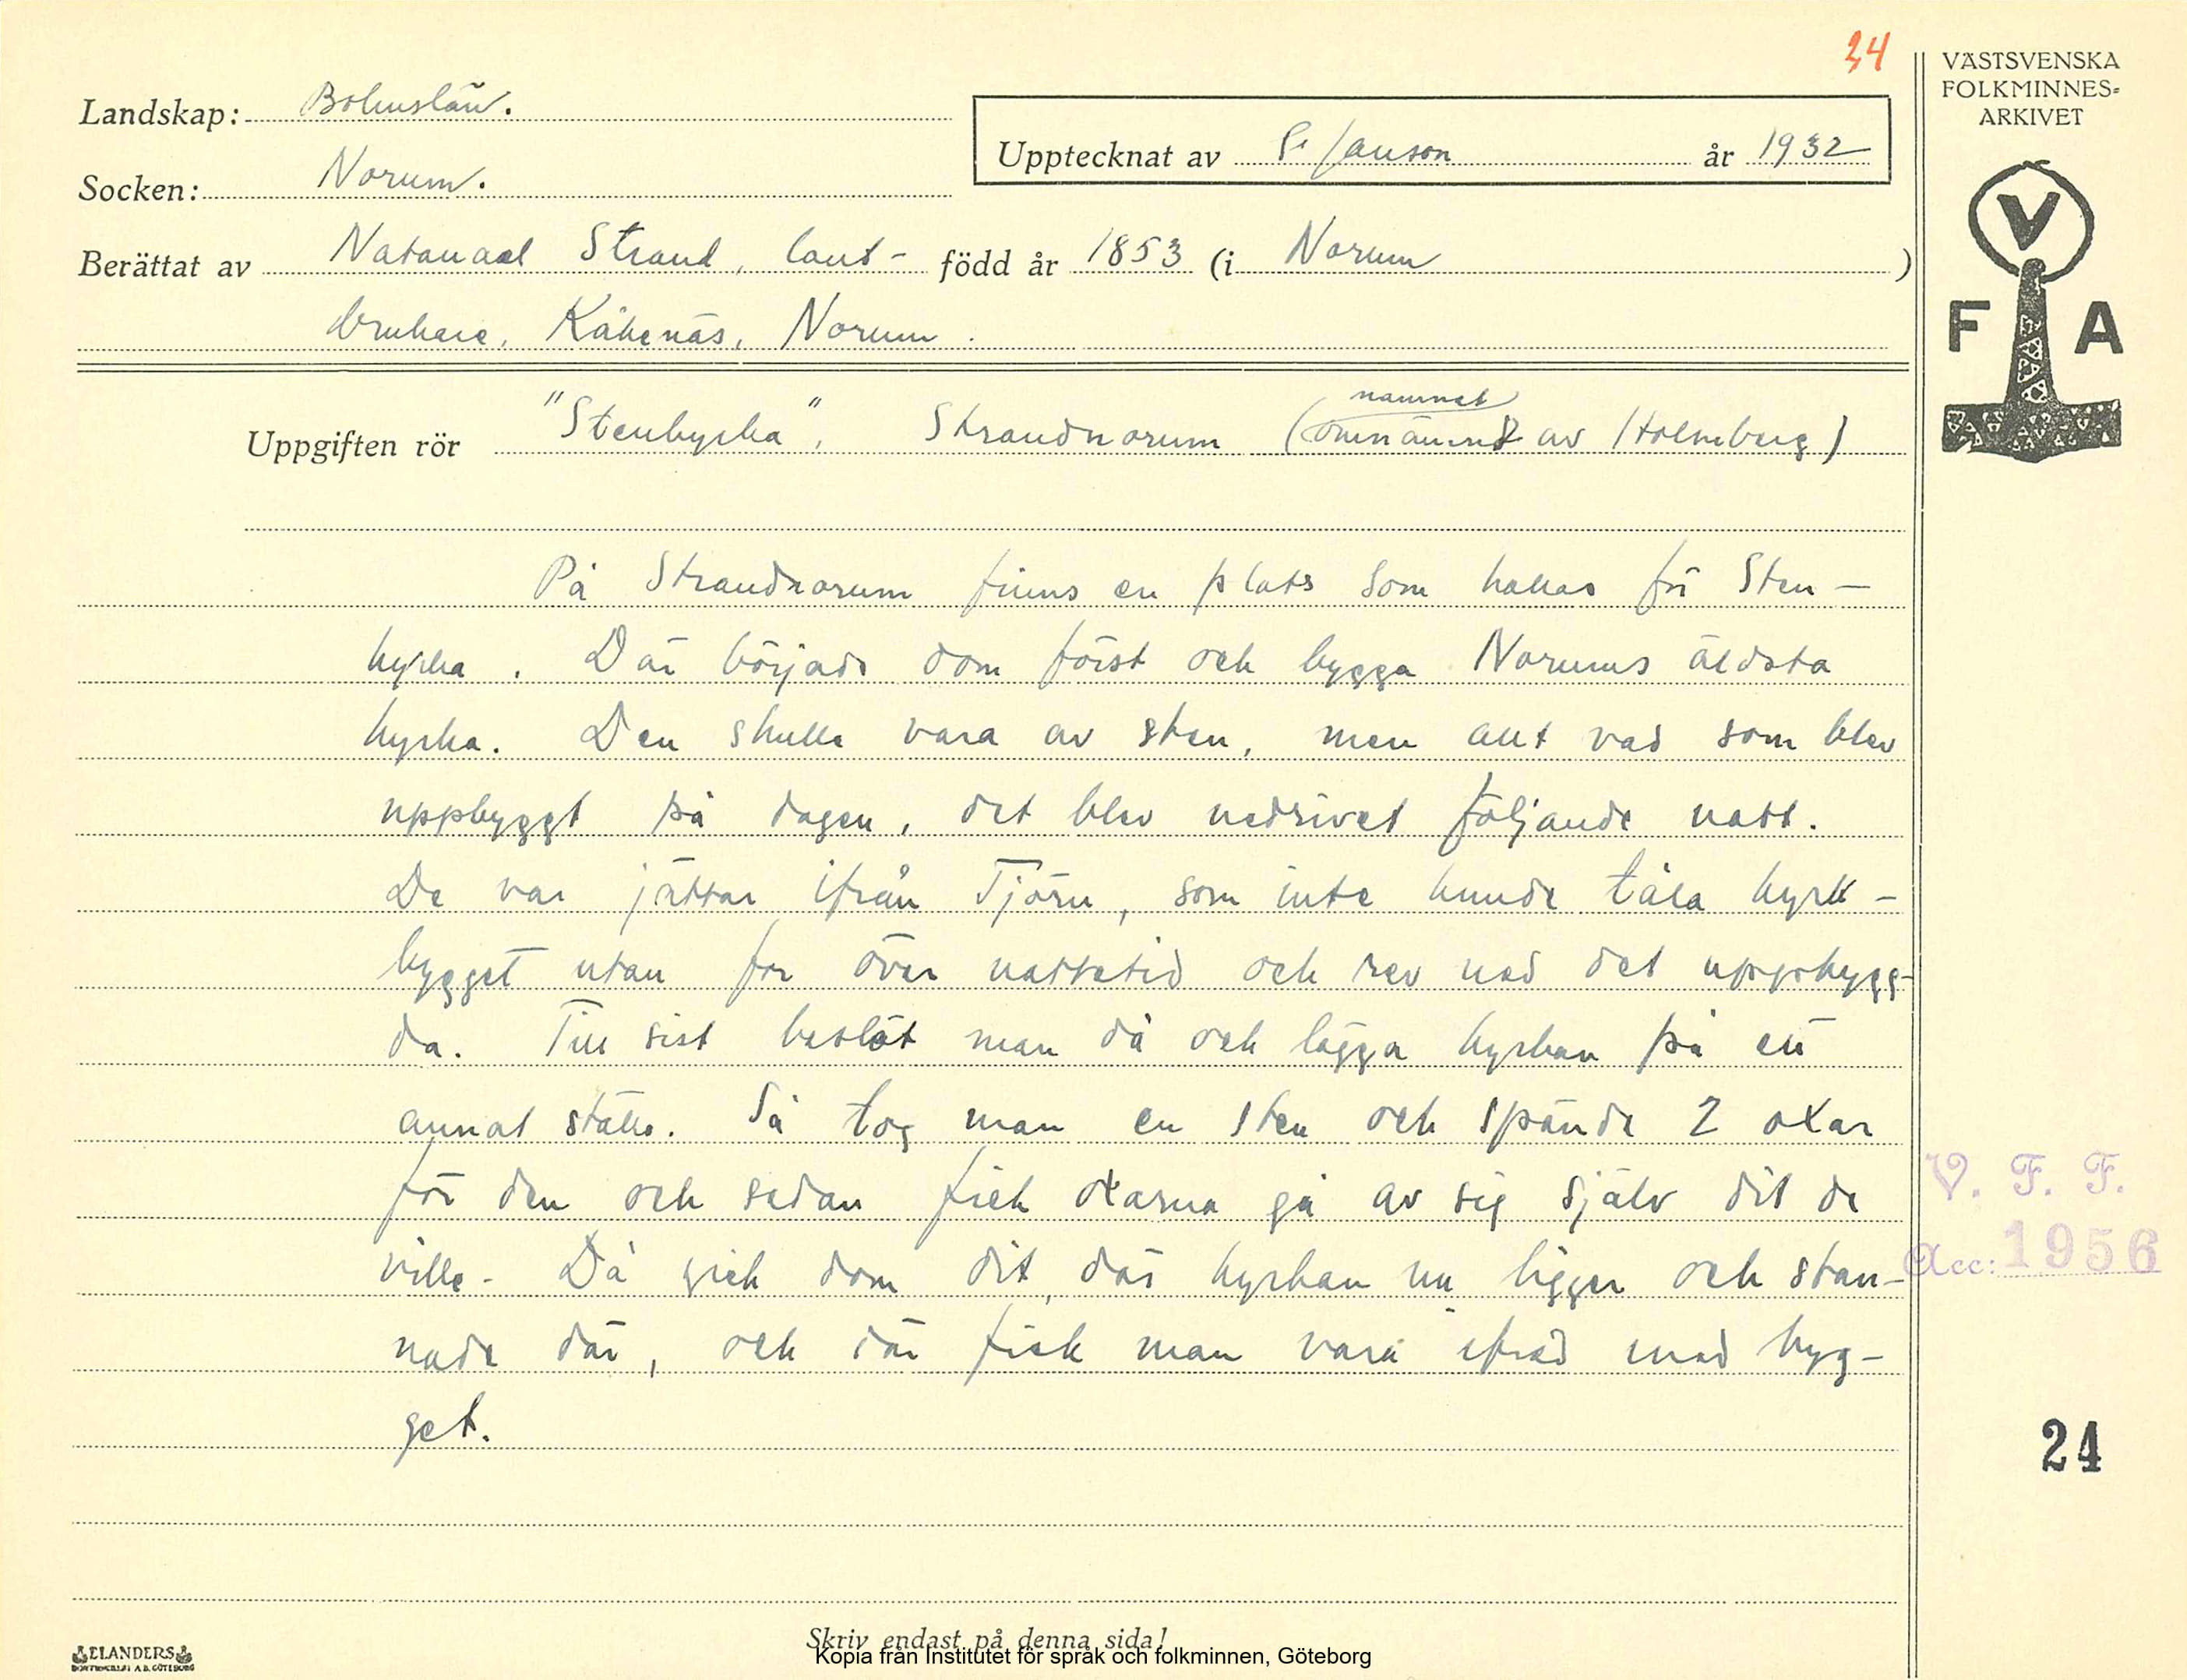 34
VÄSTSVENSKA
FOLKMINNES=
ARKIVET
Landskap: Bohuslän.
Upptecknat av S. Janson år 1932
Socken: Norum.
Berättat av Natanael Strand, lant- född år 1853 (i Norum )
brukare, Kåkenäs, Norum.
V
F A
namnet
Uppgiften rör "Stenkyrka", Strandnorum (omnämnt av Holmberg)
På Strandnorum finns en plats som kallas för Sten-
kyrka. Där började dom först och bygga Norums äldsta
kyrka. Den skulle vara av sten, men allt vad som blev
uppbyggt på dagen, det blev nedrivet följande natt.
De var jättar ifrån Tjörn, som inte kunde tåla kyrk-
bygget utan for över nattetid och rev ned det uppbygg-
da. Till sist beslöt man då och lägga kyrkan på ett
annat ställe. Så tog man en sten och spände 2 oxar
för den och sedan fick oxarna gå av sig själv dit de
ville. Då gick dom dit, där kyrkan nu ligger och stan-
nade där, och där fick man vara ifred med byg-
get.
V. F. F.
Acc: 1956
24
Skriv endast på denna sida!
Kopia från Institutet för språk och folkminnen, Göteborg
ELANDERS